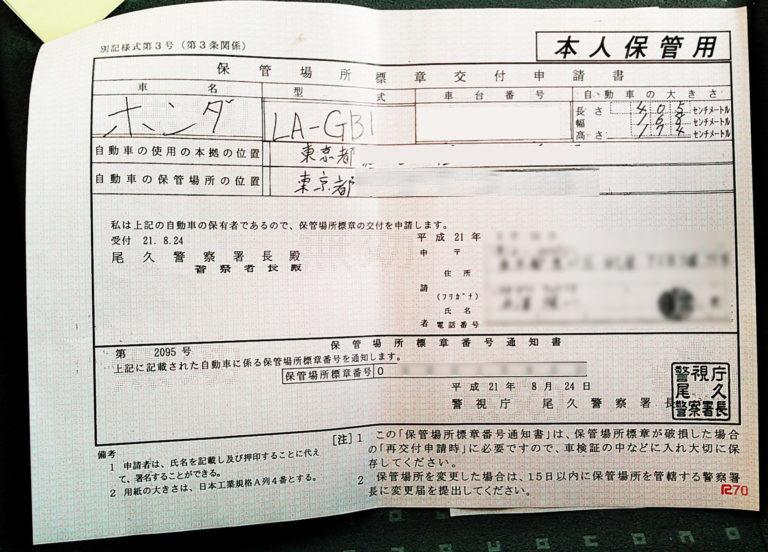 別記様式第3号（第3条関係）
本人保管用
保管場所標章交付申請書
車名 型式 車台番号 自動車の大きさ
ホンダ LA-GB1
長さ 405 センチメートル
幅 168 センチメートル
高さ 174 センチメートル
自動車の使用の本拠の位置 東京都
自動車の保管場所の位置 東京都
私は上記の自動車の保有者であるので、保管場所標章の交付を申請します。
受付 21.8.24 平成 21年
尾久警察署長殿 申 〒
警察署長殿 住所
請 (フリガナ)
氏名
者 電話番号
保管場所標章番号通知書
第 2095 号
上記に記載された自動車に係る保管場所標章番号を通知します。
保管場所標章番号 0
平成 21年 8月 24日
警視庁 尾久警察署長
警視庁
尾久
警察署長
備考
1 申請者は、氏名を記載し及び押印することに代え
て、署名することができる。
2 用紙の大きさは、日本工業規格A列4番とする。
［注］1 この「保管場所標章番号通知書」は、保管場所標章が破損した場合
の「再交付申請時」に必要ですので、車検証の中などに入れ大切に保
存してください。
2 保管場所を変更した場合は、15日以内に保管場所を管轄する警察署
長に変更届を提出してください。
R70